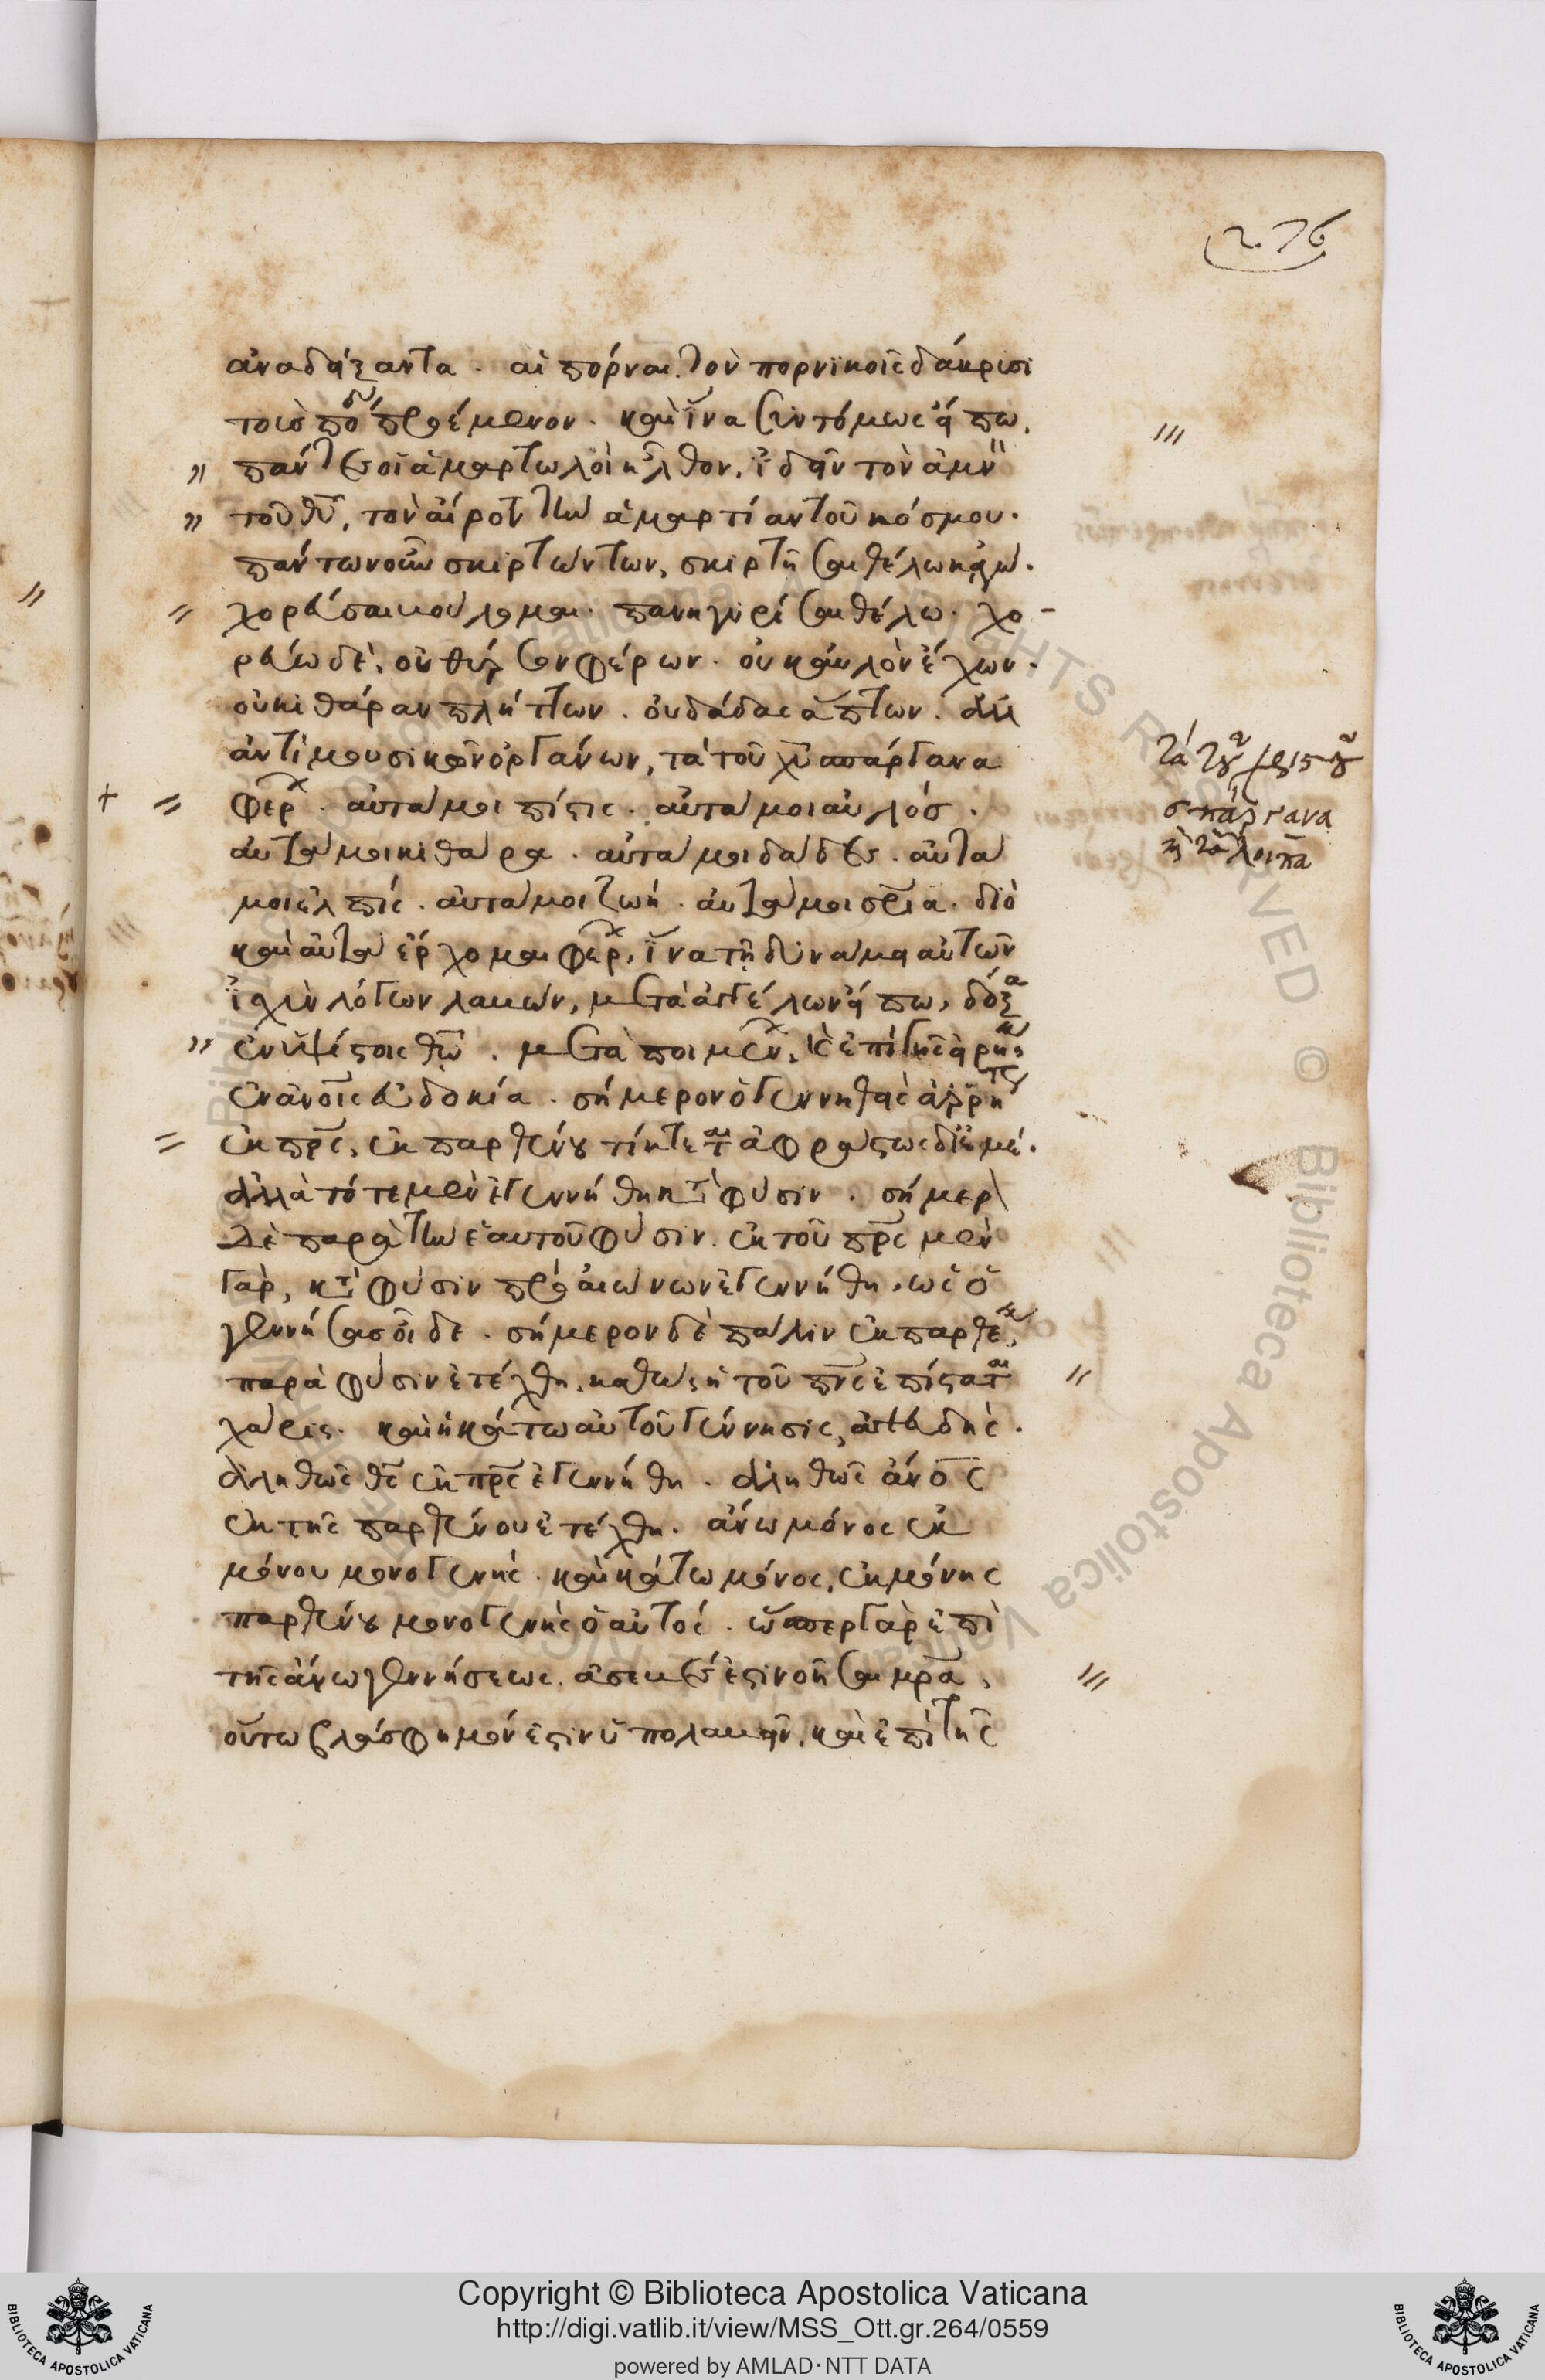 276
ἀναδείξαντα. αἱ πόρναι, τὸν πορνικοῖς δάκρυσι
τοὺς πόδ προέμενον. καὶ ἵνα συντόμως εἴπω,
πάντες οἱ ἁμαρτωλοὶ ἦλθον, ἰδεῖν τὸν ἀμν
τοῦ θυ, τὸν αἴροντ τὴν ἁμαρτίαν τοῦ κόσμου.
πάντων οὖν σκιρτώντων, σκιρτῆσαι θέλω κἀγώ.
χορεῦσαι βούλομαι. πανηγυρίσαι θέλω. χο-
ρεύω δὲ, οὐ θύρσον φέρων. οὐκ αὐλὸν ἔχων.
οὐ κιθάραν πλήττων. οὐ δᾷδας ἅπτων. ἀλλ
ἀντὶ μουσικῶν ὀργάνων, τὰ τοῦ χυ σπάργανα
φέρ. αὐτά μοι πίστις. αὐτά μοι αὐλός.
αὐτά μοι κιθάρα. αὐτά μοι δᾷδες. αὐτά
μοι ἐλπίς. αὐτά μοι ζωή. αὐτά μοι σρία. διὸ
καὶ αὐτὰ ἔρχομαι φέρ, ἵνα τῇ δυνάμει αὐτῶν
ἰσχὺν λόγων λαβών, μετὰ ἀγγέλων εἴπω, δόξα
ἐν ὑψίστοις θῶ. μετὰ ποιμένων, κὲ ἐπὶ γῆς εἰρήνη
ἐν ἀνοις εὐδοκία. σήμερον ὁ γεννηθεὶς ἀρρήτως
ἐκ πρς, ἐκ παρθένου τίκτεται ἀφράστως δι' ἐμέ.
ἀλλὰ τότε μὲν ἐγεννήθη κτ φύσιν. σήμερ
δὲ παρὰ τὴν ἑαυτοῦ φύσιν. ἐκ τοῦ πρς μὲν
γὰρ, κτ φύσιν πρὸ αἰώνων ἐγεννήθη, ὡς ὁ
γεννήσας οἶδε. σήμερον δὲ πάλιν ἐκ παρθέν,
παρὰ φύσιν ἐτέχθη, καθὼς ἡ τοῦ πνς ἐπίσταται
χάρις. καὶ ἡ κάτω αὐτοῦ γέννησις, ἀψευδής.
ἀληθῶς θς ἐκ πρς ἐγεννήθη. ἀληθῶς ἄνος
ἐκ τῆς παρθένου ἐτέχθη. ἄνω μόνος ἐκ
μόνου μονογενής. καὶ κάτω μόνος, ἐκ μόνης
παρθένου μονογενὴς ὁ αὐτός. ὥσπερ γὰρ ἐπὶ
τῆς ἄνω γεννήσεως, ἀσεβές ἐστι νοῆσαι μρα,
οὕτω βλάσφημόν ἐστιν ὑπολαβεῖν, καὶ ἐπὶ τῆς
τὰ τοῦ χριστοῦ
σπάργανα
κὴ τὰ λοιπα
Copyright © Biblioteca Apostolica Vaticana
http://digi.vatlib.it/view/MSS_Ott.gr.264/0559
powered by AMLAD·NTT DATA
BIBLIOTECA APOSTOLICA VATICANA
BIBLIOTECA APOSTOLICA VATICANA